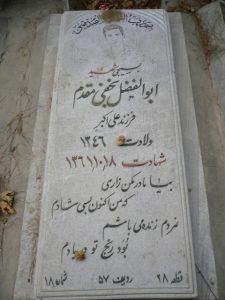 بسیجی شهید
ابوالفضل نجفی مقدم
فرزند علی اکبر
ولادت ۱۳۴۶
شهادت ۱۳۶۱/۱۰/۸
بیا مادر مکن زاری
که من اکنون بسی شادم
نمردم زنده می باشم
بود رنج تو در یادم
قطعه ۲۸ ردیف ۵۷ شماره ۱۸